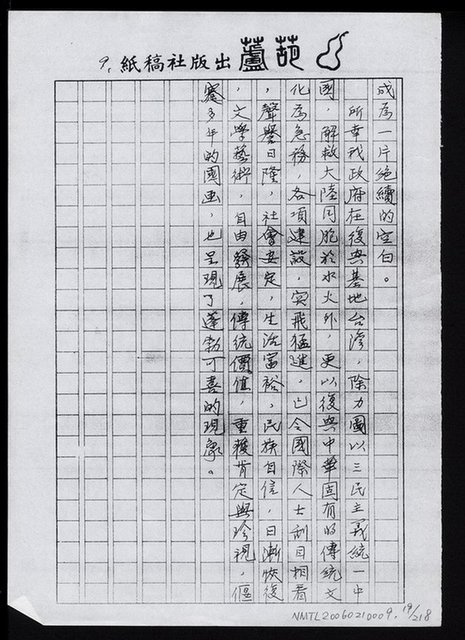 葫蘆出版社稿紙 9.
成為一片絕續的空白。
所幸我政府在復興基地台灣，除力圖以三民主義統一中
國，解救大陸同胞於水火外，更以復興中華固有的傳統文
化為急務，各項建設，突飛猛進，已令國際人士刮目相看
，聲譽日隆，社會安定，生活富裕，民族自信，日漸恢復
，文學藝術，自由發展，傳統價值，重獲肯定與珍視，偃
蹇多年的國画，也呈現了蓬勃可喜的現象。
NMTL20060210009. 19/218